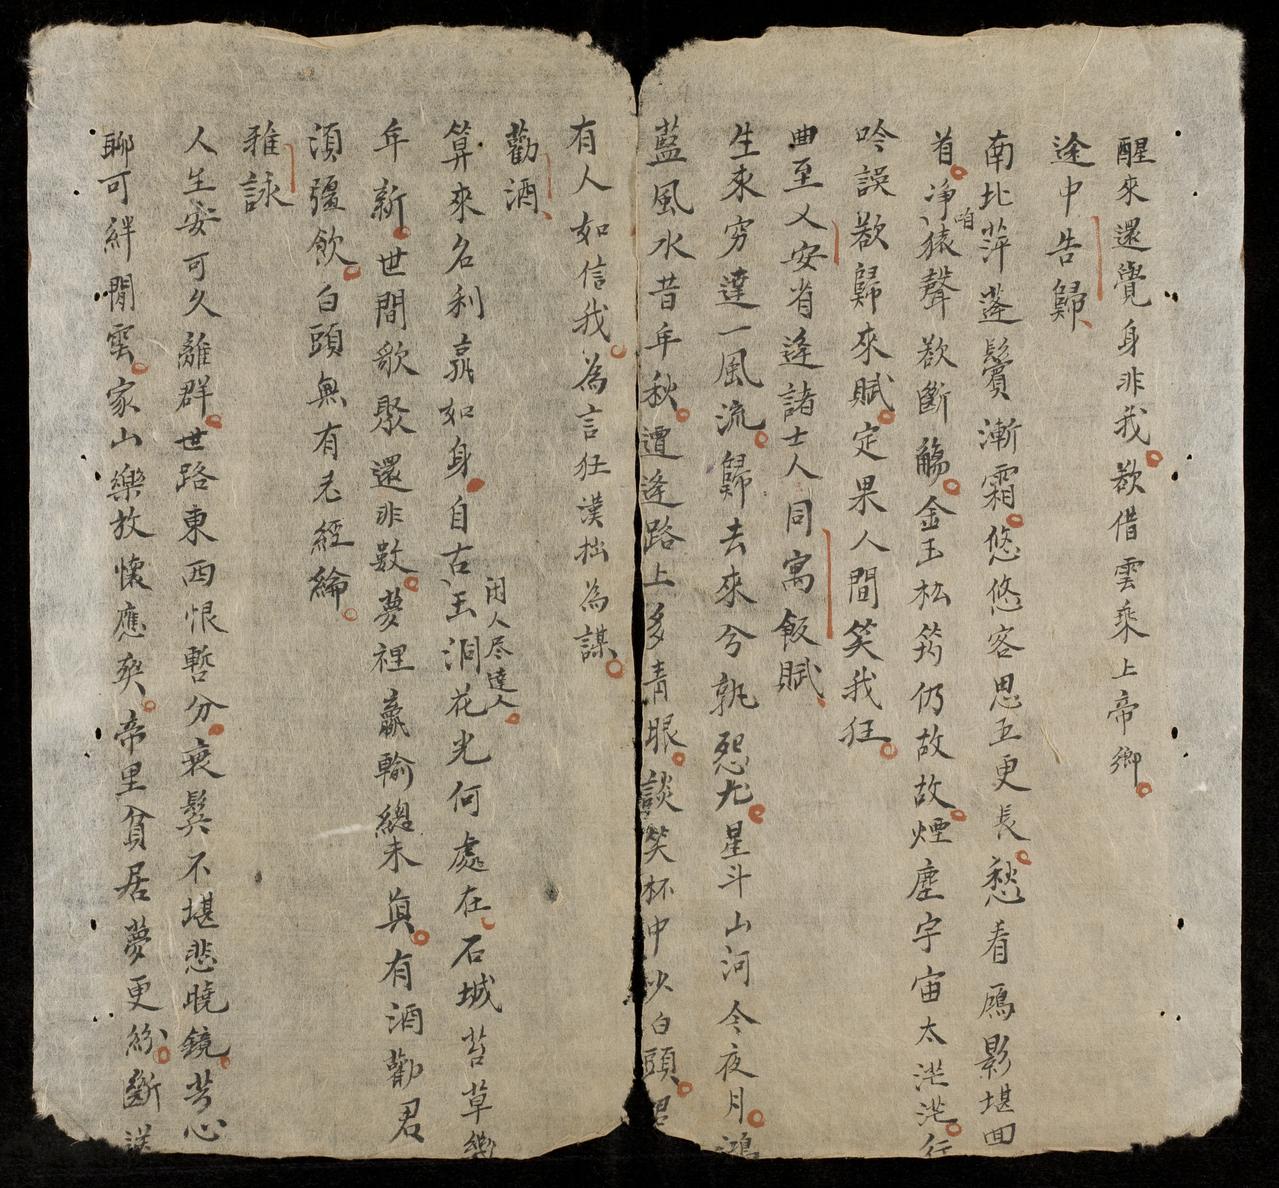 醒來還覺身非我欲借雲乘上帝鄉
途中告歸
南北萍蓬鬢漸霜悠悠客思五更長愁看鴈影堪回
首凈猿聲欲斷觴金玉松筠仍故故煙塵宇宙太茫茫行
咱
吟誤欲歸來賦定果人間笑我狂
曲至乂安省逢諸士人同寓飯賦
生來穷達一風流歸去來兮孰怨尤星斗山河今夜月鴻
藍風水昔年秋遭逢路上多青眼談笑杯中少白頭君
有人如信我為言狂漢拙為謀
勸酒
閑人尽達人
算來名利羸如身自古玉洞花光何處在石城苔草幾
年新世間歌聚還非數夢裡贏輸總未真有酒勸君
須彊飲白頭無有老經綸
雅詠
人生安可久離群世路東西恨暫分衰鬓不堪悲曉鏡芳心
聊可絆閒雲家山樂放懷應爽帝里貧居夢更紛斷送